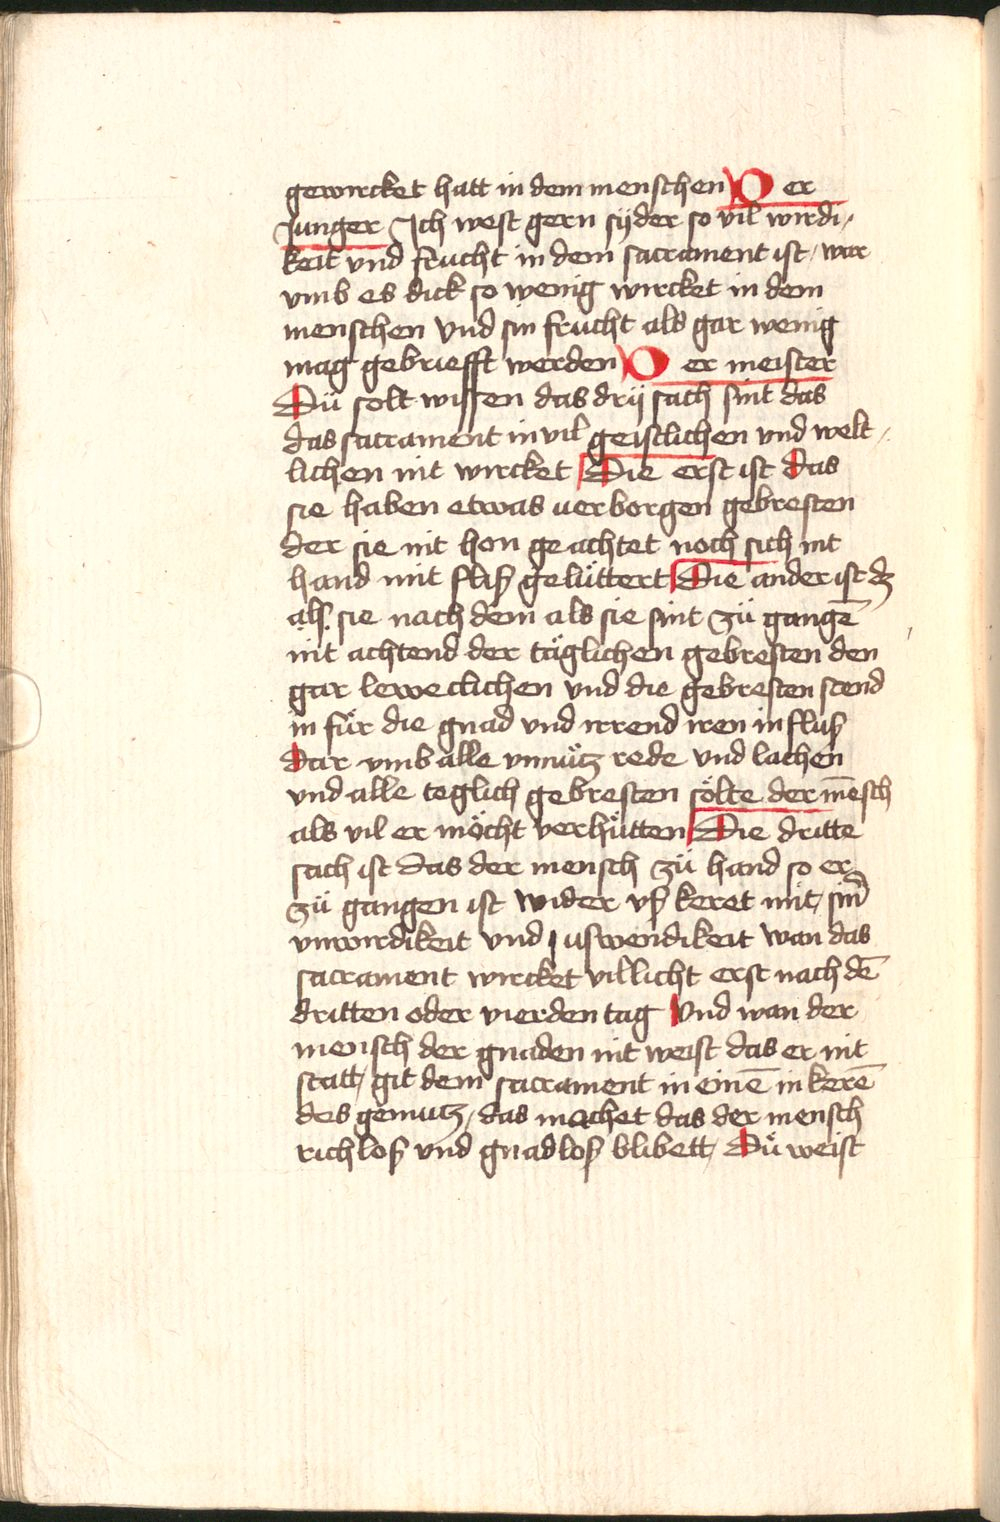 gewircket hatt in dem menschen Der
Junger Ich west gern sÿder so vil wirdi,
keit vnd frucht in dem sacrament ist / war
vmb es dick so wenig wircket in dem
menschen vnd sin frucht als gar wenig
mag gebriefft werden Der meister
Dü solt wissen das drij sach sint das
das sacrament in vil geistlichen vnd welt,
lichen nit wircket Die erst ist das
sie haben etwas uerborgen gebresten
der sie nit hon ge achtet noch sich nit
hand mit fliß gelüttert Die ander ist dz
als sie nach dem als sie sint zü gangē
nit achtend der täglichen gebresten den
gar leweclichen vnd die gebresten stend
in für die gnad vnd irrend iren in fluß
Dar vmb alle vnnütz rede vnd lachen
vnd alle teglich gebresten sölte der mēsch
als vil er möcht verhütten Die dritte
sach ist das der mensch zü hand so er
zü gangen ist wider vß keret mit / sinē
vnwirdikeit vnd uswendikeit wan das
sacrament wircket villicht erst nach dē
dritten oder vierden tag Vnd wan der
mensch der gnaden nit weist das er nit
statt / git dem sacrament in einē in kerē
des gemütz / das machet das der mensch
richloß vnd gnadloß blibett / Dü weist